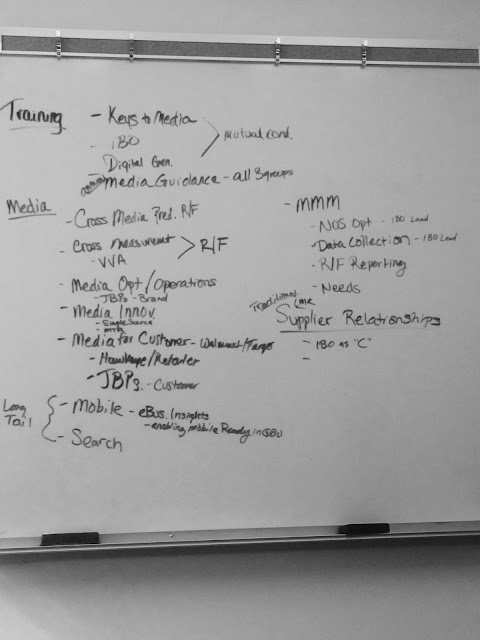 Training - Keys to Media
- iBO
Digital Gen.
mutual cond.
Media Guidance - all 3 groups
Media
- Cross Media Pred. R/F
- Cross measument > R/F
- VVA
- Media Opt/Operations
- JBPs - Brand
- Media Innov.
- Single Source
- Media for Customer - Walmart/Target
- Hawkeye/Retailer
- JBPs - Customer
Long Tail
- Mobile - eBus. Insights
- enabling mobile Ready in GBU
- Search
- MMM
- NOS Opt - IBO Lead
- Data Collection - IBO Lead
- R/F Reporting
- Needs
Traditional
Supplier Relationships
- IBO as "C"
-